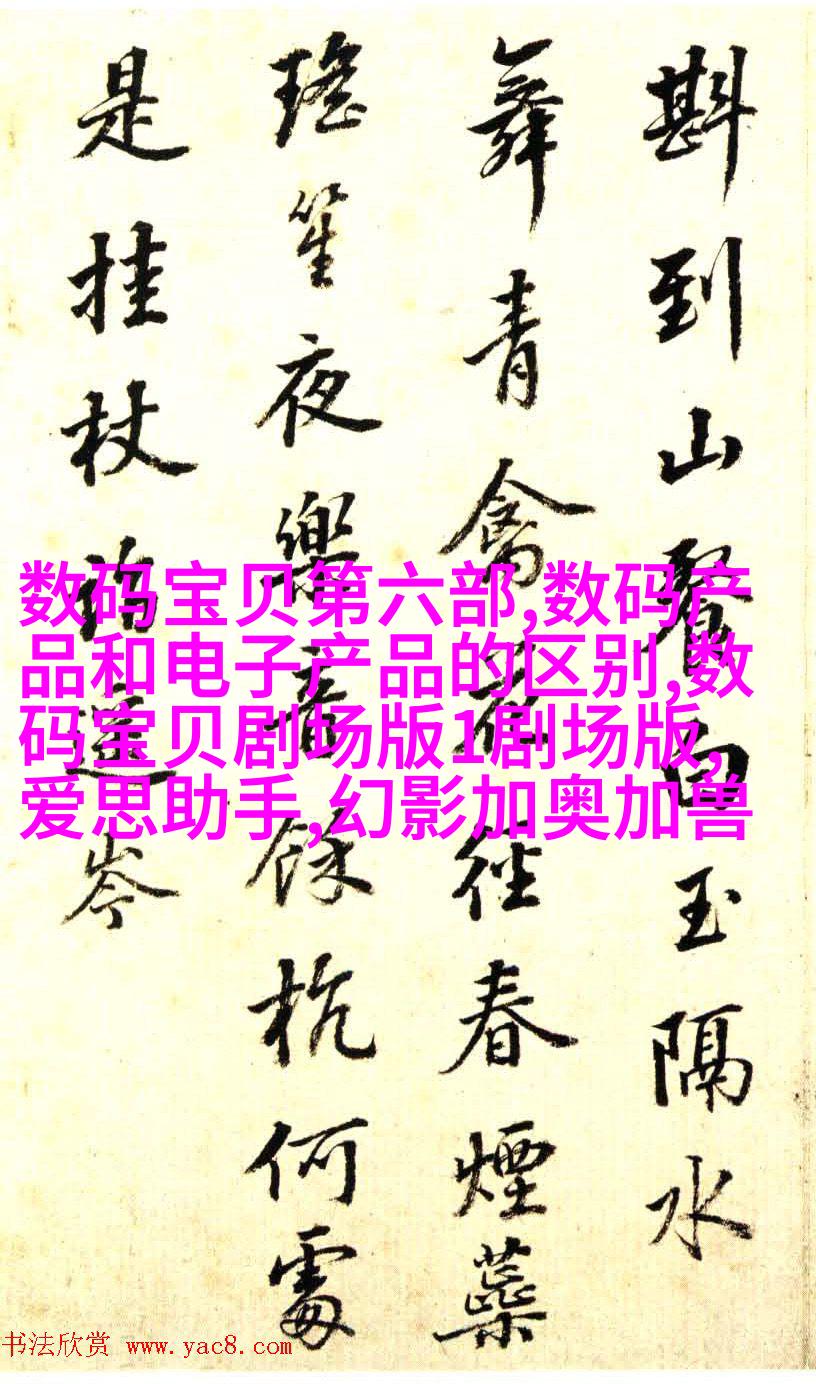 斟到山白玉隔水
舞青禽徑春煙
瑤笙夜樂音餘杭何處
是挂杖岑
数码宝贝第六部,数码产
品和电子产品的区别,数
码宝贝剧场版1剧场版,
爱思助手,幻影加奥加兽
书法欣赏 www.yac8.com